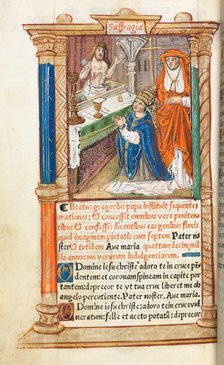 Suffragia
Beatus gregorius papa instituit sequentes
orationes: Et concessit omnibus vere peniten
tibus et confessis dicentibus eas genibus flexis
coram imaginem pietatis cum septem Pater no
ster Et totidem Aue maria quatuordecim mil
lia annorum verarum indulgentiarum.
O Domine iesu christe adoro te in cruce pe
dentem et coronam spineam in capite por
tantem deprecor te vt tua crux liberet me ab
angelo percutiente. Pater noster. Aue maria.
O Domine iesu christe adoro te in cruce vul
neratum: felle et aceto potatū: deprecor